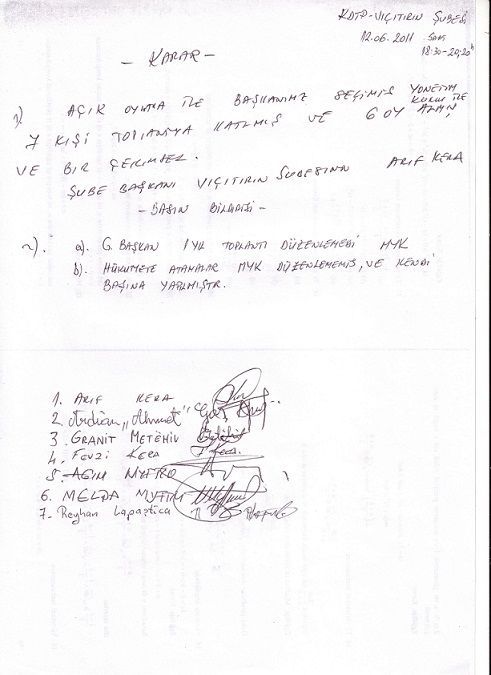 KDTP-VIÇITIRIN ŞUBESİ
12.06.2011 SAAT
18:30-20:20h
- KARAR -
1) AÇIK OYLAMA İLE BAŞKANIMIZ SEÇİMİŞ YÖNETİM KURULU İLE
7 KIŞI TOPLANTIYA KATILMIŞ VE 6 OY ALMIŞ
VE BIR ÇEKİMSER.
ŞUBE BAŞKANI VIÇITIRIN ŞUBESININ ARIF KERA
- BASIN BİLDİRİSİ -
2). a). G. BAŞKAN TOPLANTI DÜZENLEMEDİ MYK
b). HÜKUMETE ATAMALAR MYK DÜZENLEMEMIŞ, VE KENDI
BAŞINA YAPILMIŞTR.
1. ARIF KERA
2. Ardian "Ahmet"
3. GRANIT METEHIU
4. FEVZI KERA F Kera.
5. AGIM MYFTRO
6. MELDA MYFTIM
7- Reyhan Lapaştica